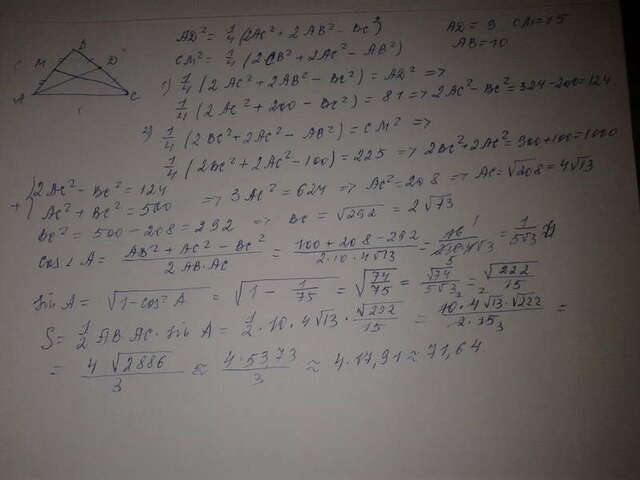 B
C M D
A C
AD² = 1/4 (2AC² + 2AB² - BC²) AD = 9 CM = 15
CM² = 1/4 (2CB² + 2AC² - AB²) AB = 10
1) 1/4 (2AC² + 2AB² - BC²) = AD² =>
1/4 (2AC² + 200 - BC²) = 81 => 2AC² - BC² = 324 - 200 = 124
2) 1/4 (2BC² + 2AC² - AB²) = CM² =>
1/4 (2BC² + 2AC² - 100) = 225 => 2BC² + 2AC² = 900 + 100 = 1000
+ { 2AC² - BC² = 124 => 3AC² = 624 => AC² = 208 => AC = √208 = 4√13
AC² + BC² = 500
BC² = 500 - 208 = 292 => BC = √292 = 2√73
cos ∠A = (AB² + AC² - BC²)/(2AB·AC) = (100 + 208 - 292)/(2·10·4√13) =
sin A = √(1 - cos² A) = √(1 - 1/75) = √(74/75) = √74/(5√3) = √222/15
S = 1/2 AB·AC·sin A = 1/2 · 10 · 4√13 · √222/15 = (10·4√13·√222)/(2·15) =
= 4√2886/3 ≈ (4·53,73)/3 ≈ 4·17,91 ≈ 71,64.